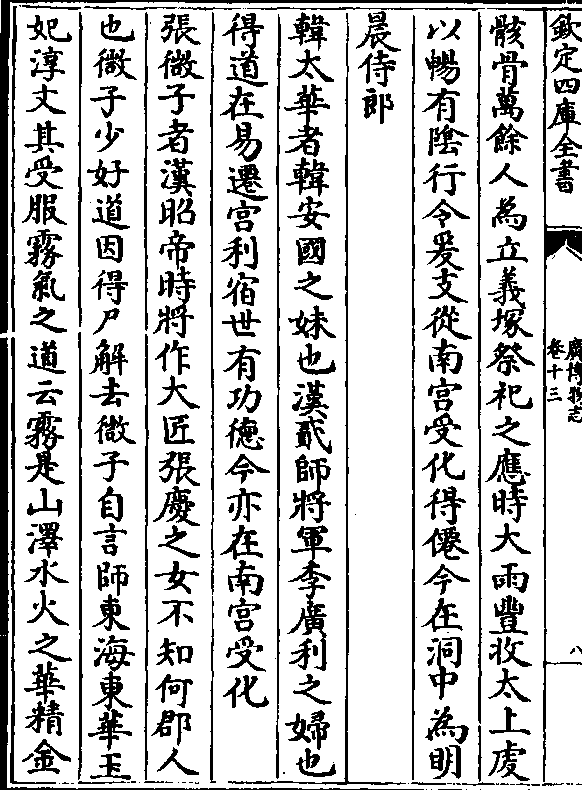 欽定四庫全書
廣博物志
卷十三
八
骸骨萬餘人為立義塚祭祀之應時大雨豐收太上處
以暢有隂行令爰支從南宫受化得僊今在洞中為明
晨侍郎
韓太華者韓安國之妹也漢貳師將軍李廣利之婦也
得道在易遷宫利宿世有功徳今亦在南宫受化
張微子者漢昭帝時將作大匠張慶之女不知何郡人
也微子少好道因得尸解去微子自言師東海東華玉
妃淳文其受服霧氣之道云霧是山澤水火之華精金